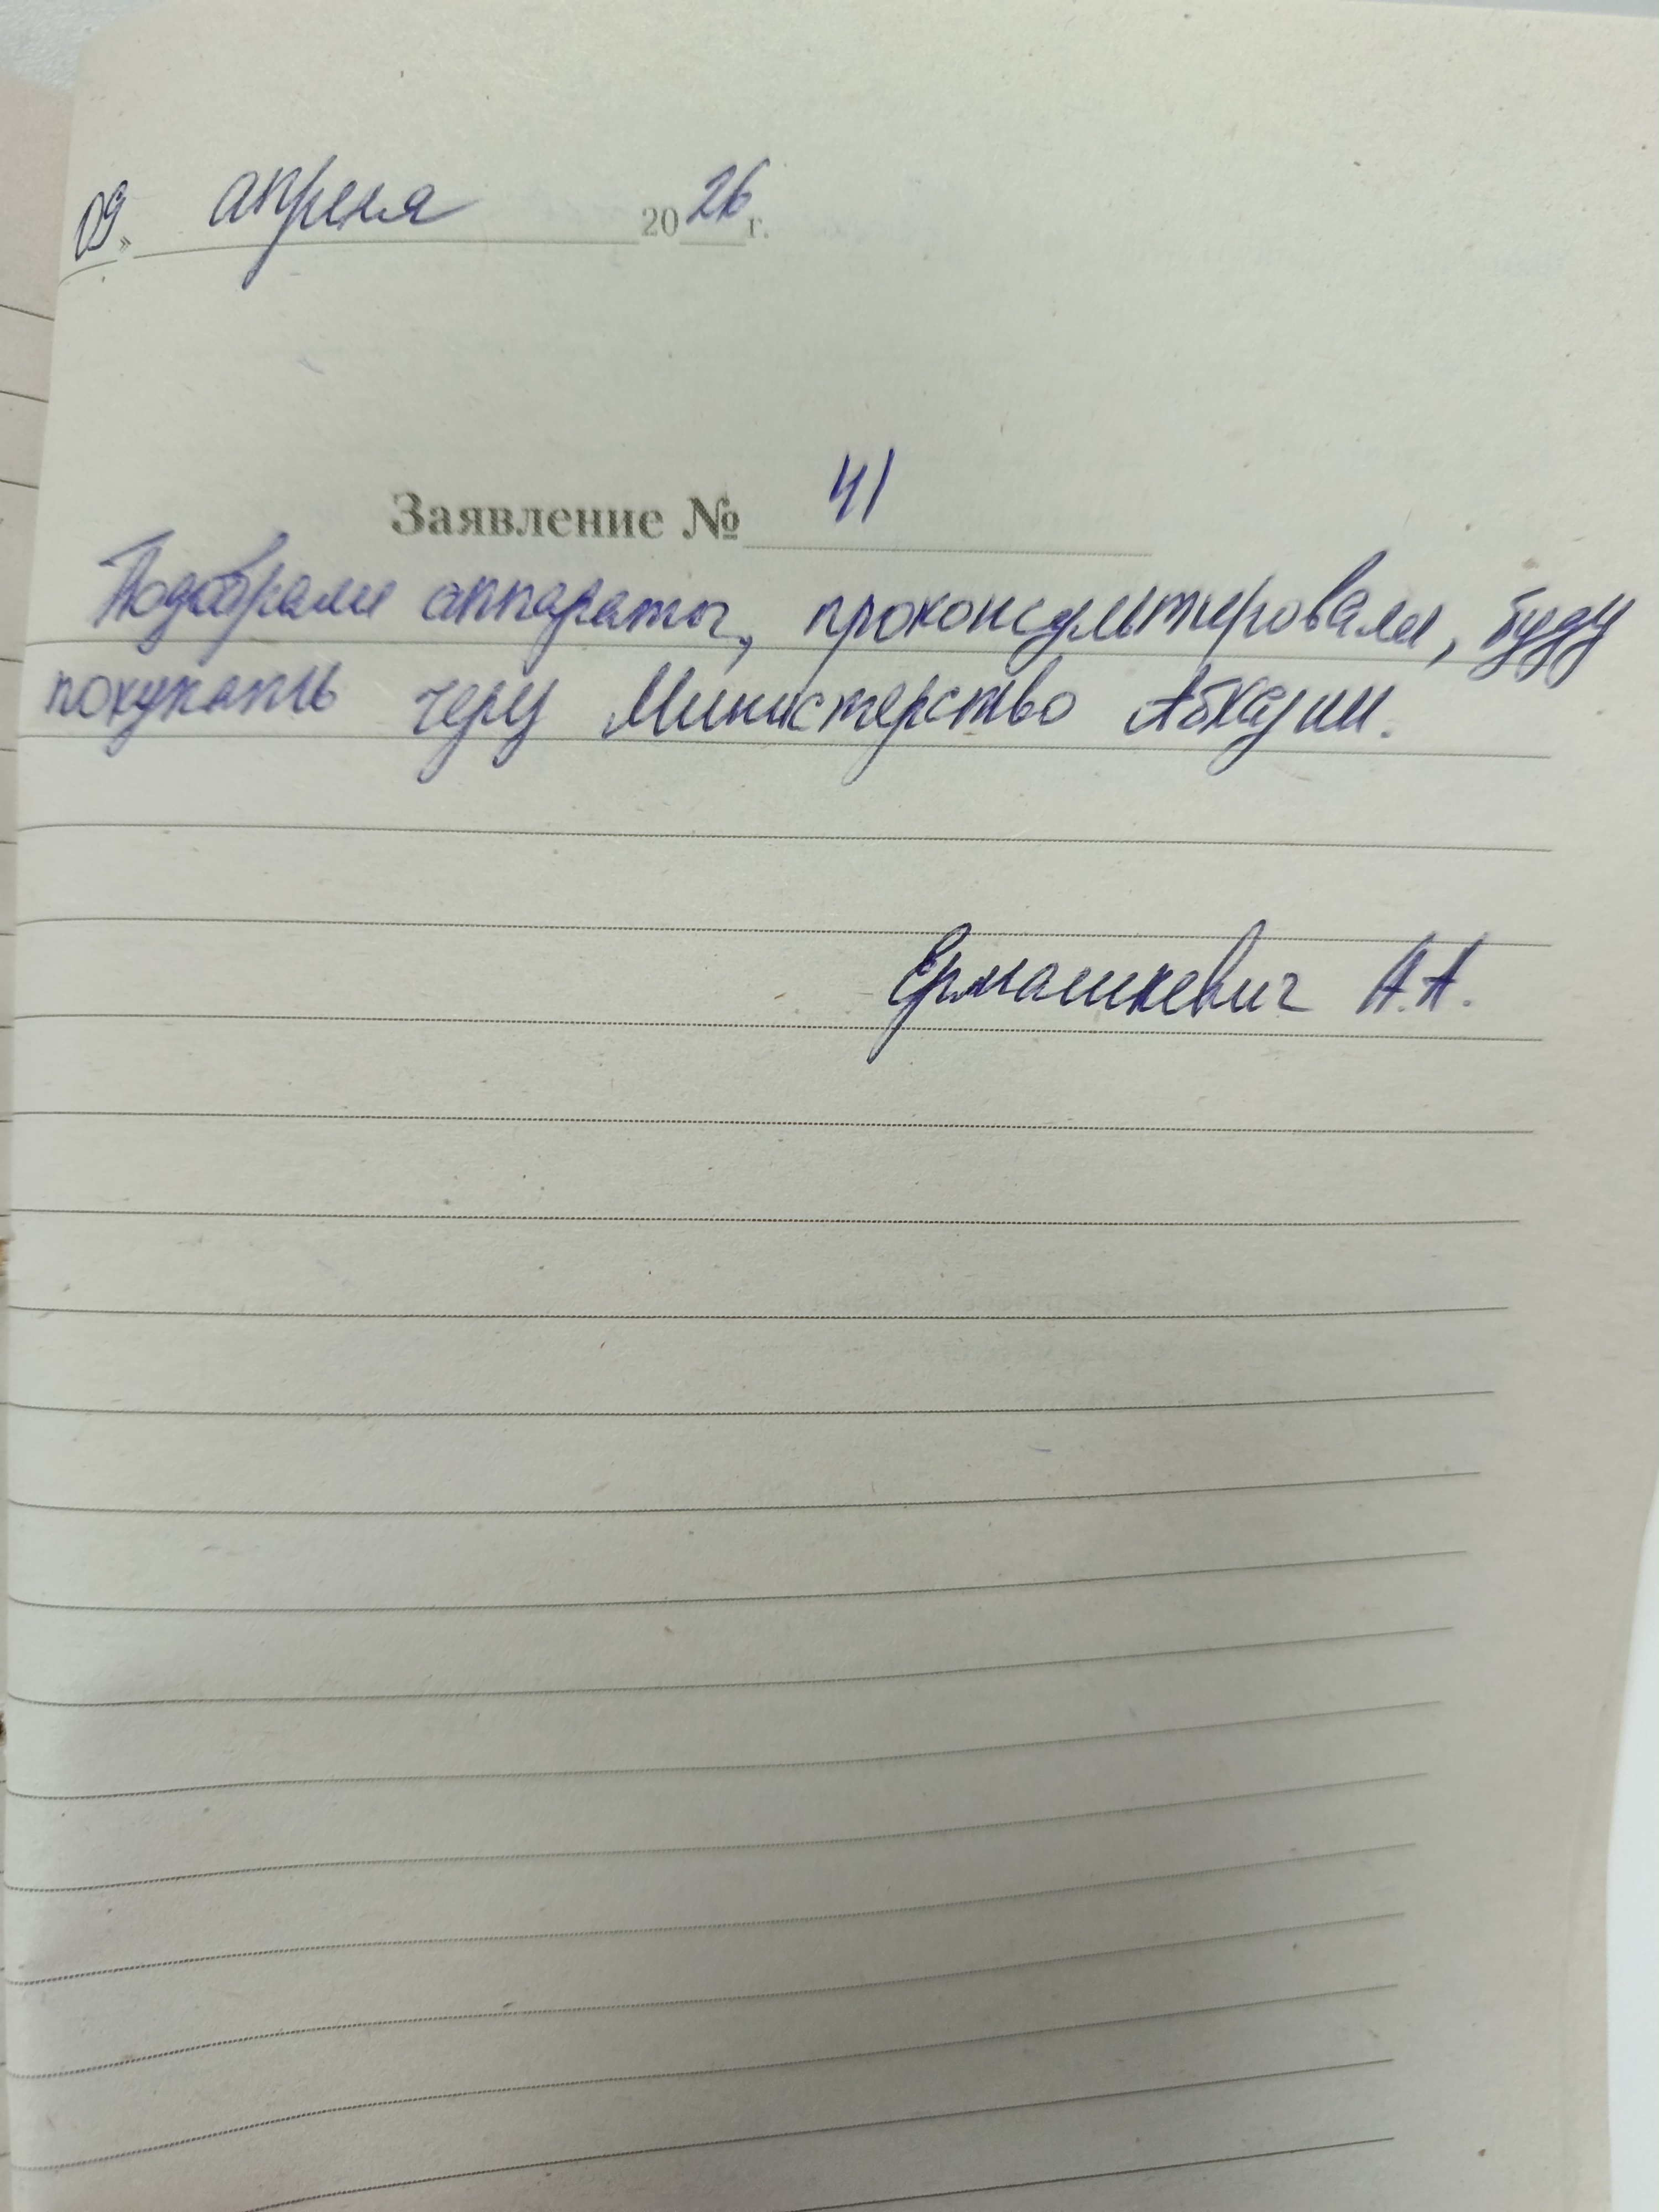 09 » апреля 2026 г.
Заявление № 41
Подобрали аппараты, проконсультировали, буду
покупать через Министерство Абхазии.
Ермашкевич А.А.